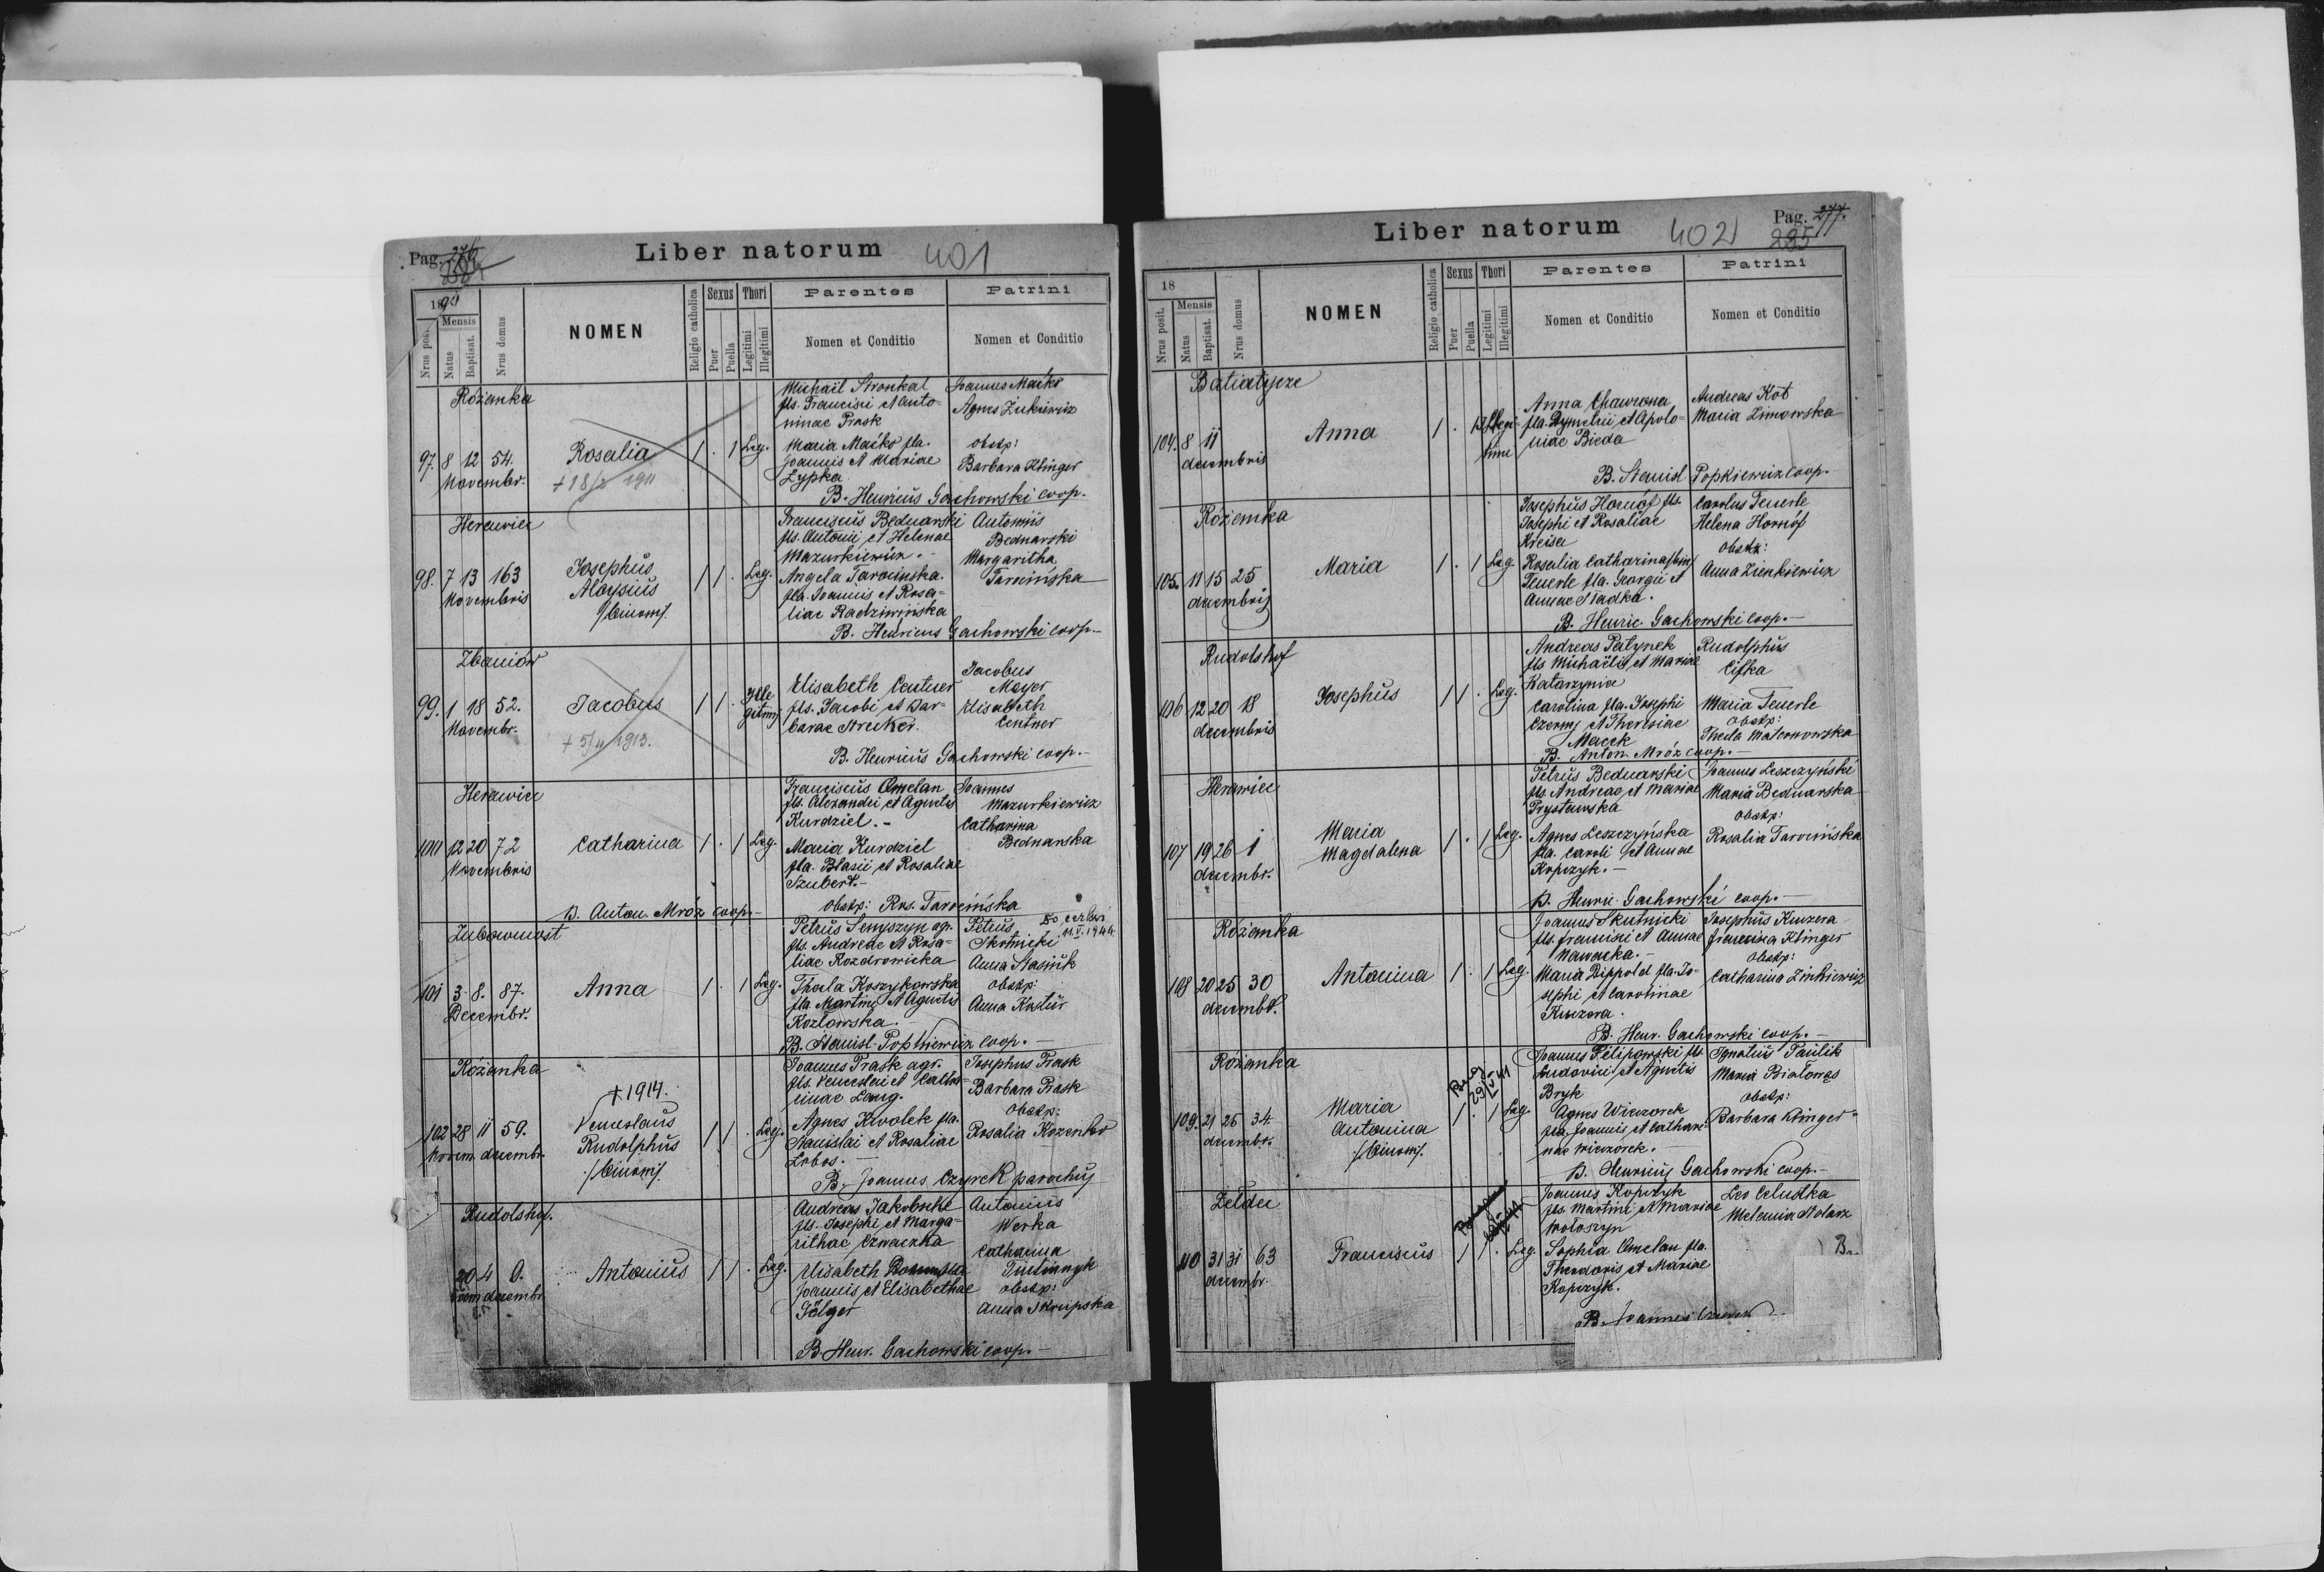 Pag. 276
Liber natorum 401
1891
Nrus posit.
Mensis
Natus
Baptisat.
Nrus domus
NOMEN
Religio catholica
Sexus
Puer
Puella
Thori
Legitimi
Illegitimi
Parentes
Nomen et Conditio
Patrini
Nomen et Conditio
Różanka
97. 8 12 54.
Novembr.
Rosalia
+ 18/2 1911
1 . 1 Leg.
Michaël Stronkal
fls. Francisci et Anto-
ninae Prask
Maria Maćko fla.
Joannis et Mariae
Łypka
Joannes Maćko
Agnes Żukiewicz
obstp:
Barbara Klinger
B. Henricus Gachowski coop.
Herawiec
98. 7 13 163
Novembris
Josephus
Aloysius
/binomj.
1 1 . Leg.
Franciscus Bednarski
fls. Antonii et Helenae
Mazurkiewicz. -
Angela Tarocinska.
fla. Joannis et Rosa-
liae Radziwińska
Antoniis
Bednarski
Margaritha
Tarcińska
B. Henricus Gachowski coop. -
Zbaniów
99. 1 18 52.
Novembr.
Jacobus
+ 5/11 1913.
1 1 . Ille-
gitimj
Elisabeth Centner
fls. Jacobi et Bar-
barae Strecker.
Jacobus
Mayer
Elisabeth
Centner
B. Henricus Gachowski coop. -
Herawiec
100 12 20 72
Novembris
Catharina
1 . 1 Leg.
Franciscus Omelan
fls. Alexandri et Agnetis
Kurdziel. -
Maria Kurdziel
fla. Blasii et Rosaliae
Szubert. -
Joannes
Mazurkiewicz
Catharina
Bednarska
obstp: Ros. Tarocińska
B. Anton. Mróz coop. -
Zubowmost
101 3. 8. 87.
Decembr.
Anna
1 . 1 Leg.
Petrus Senyszyn agr.
fls. Andreae et Rosa-
liae Rozdrowicka
Thecla Koszykowska
fla Martini et Agnetis
Kozłowska.
Petrus
Skotnicki
Anna Stasiuk
obstp:
Anna Kostur
11.V.1944
B. Stanisl. Popkiewicz coop. -
Różanka
+ 1914.
102 28 11 59.
Novem. decembr.
Venceslaus
Rudolphus
/binomj.
1 1 . Leg.
Joannes Prask agr.
fls. Venceslai et Catha-
rinae Lang.
Agnes Kwolek fla.
Stanislai et Rosaliae
Łobos. -
Josephus Prask
Barbara Prask
obstp:
Rosalia Kozenko
B. Joannes Czyrek parochuj
Rudolshof.
20 4 0.
decembr.
Antonius
1 1 . Leg.
Andreas Jakobsche
fls. Josephi et Marga-
rithae Czwaczka
Elisabeth
Joannis et Elisabethae
Sälger
Antonius
Werka
Catharina
Tustinnyk
obstp:
Anna Skrupska
B. Henr. Gachowski coop. -
Liber natorum 402
Pag. 277.
285
18
Nrus posit.
Mensis
Natus
Baptisat.
Nrus domus
NOMEN
Religio catholica
Sexus
Puer
Puella
Thori
Legitimi
Illegitimi
Parentes
Nomen et Conditio
Patrini
Nomen et Conditio
Batiatycze
104. 8 11
decembris
Anna
1 . 1 Illegi-
timi
Anna Chawrona
fla. Dymetrii et Apolo-
niae Bieda
Andreas Kot
Maria Zimowska
B. Stanisl Popkiewicz coop. -
Różanka
105. 11 15 25
decembrij
Maria
1 . 1 Leg.
Josephus Hornóf fls.
Josephi et Rosaliae
Kreisa
Rosalia Catharina /bin/
Feuerle fla. Georgii et
Annae Sladka.
Carolus Feuerle
Helena Hornóf
obstx:
Anna Zienkiewicz
B. Henric. Gachowski coop. -
Rudolshof
106 12 20 18
decembris
Josephus
1 1 . Leg.
Andreas Patynek
fls Michaëlis et Mariae
Katarzynia
Carolina fla. Josephi
Czernj et Theresiae
Macek
Rudolphus
Cifka
Maria Feuerle
obstp:
Thecla Maternowska
B. Anton. Mróz coop. -
Herawiec
107 19 26 1
decembr.
Maria
Magdalena
1 . 1 Leg.
Petrus Bednarski
fls. Andreae et Mariae
Prystawska
Agnes Leszczyńska
fla. Caroli et Annae
Kopczyk. -
Joannes Leszczyński
Maria Bednarska
obstp:
Rosalia Tarocińska
B. Henric. Gachowski coop. -
Różanka
108 20 25 30
decembr.
Antonina
1 . 1 Leg.
Joannes Skutnicki
fls. Francisci et Annae
Nawacka. -
Maria Dippold fla. Jo-
sephi et Carolinae
Kuczera.
Josephus Kuczera
Francisca Klinger
obstp:
Catharina Zinkiewicz
B. Henr. Gachowski coop. -
Różanka
109. 21 25 34.
decembr.
Maria
Antonina
/binomj.
29/V 41
1 . 1 Leg.
Joannes Filipowski fls.
Ludovici et Agnetis
Bryk
Agnes Wieczorek
fla. Joannis et Cathari-
nae Wieczorek.
Ignatius Paulik
Maria Białowąs
obstp:
Barbara Klinger
B. Henricuj Gachowski coop. -
Żełdec
110 31 31 63
decembr.
Franciscus
1 1 . Leg.
Joannes Kopczyk
fls. Martini et Mariae
Wołoszyn
Sophia Omelan fla.
Theodoris et Mariae
Kopczyk.
Leo Celustka
Melania Stolarz
B.
B. Joannes Czyrek